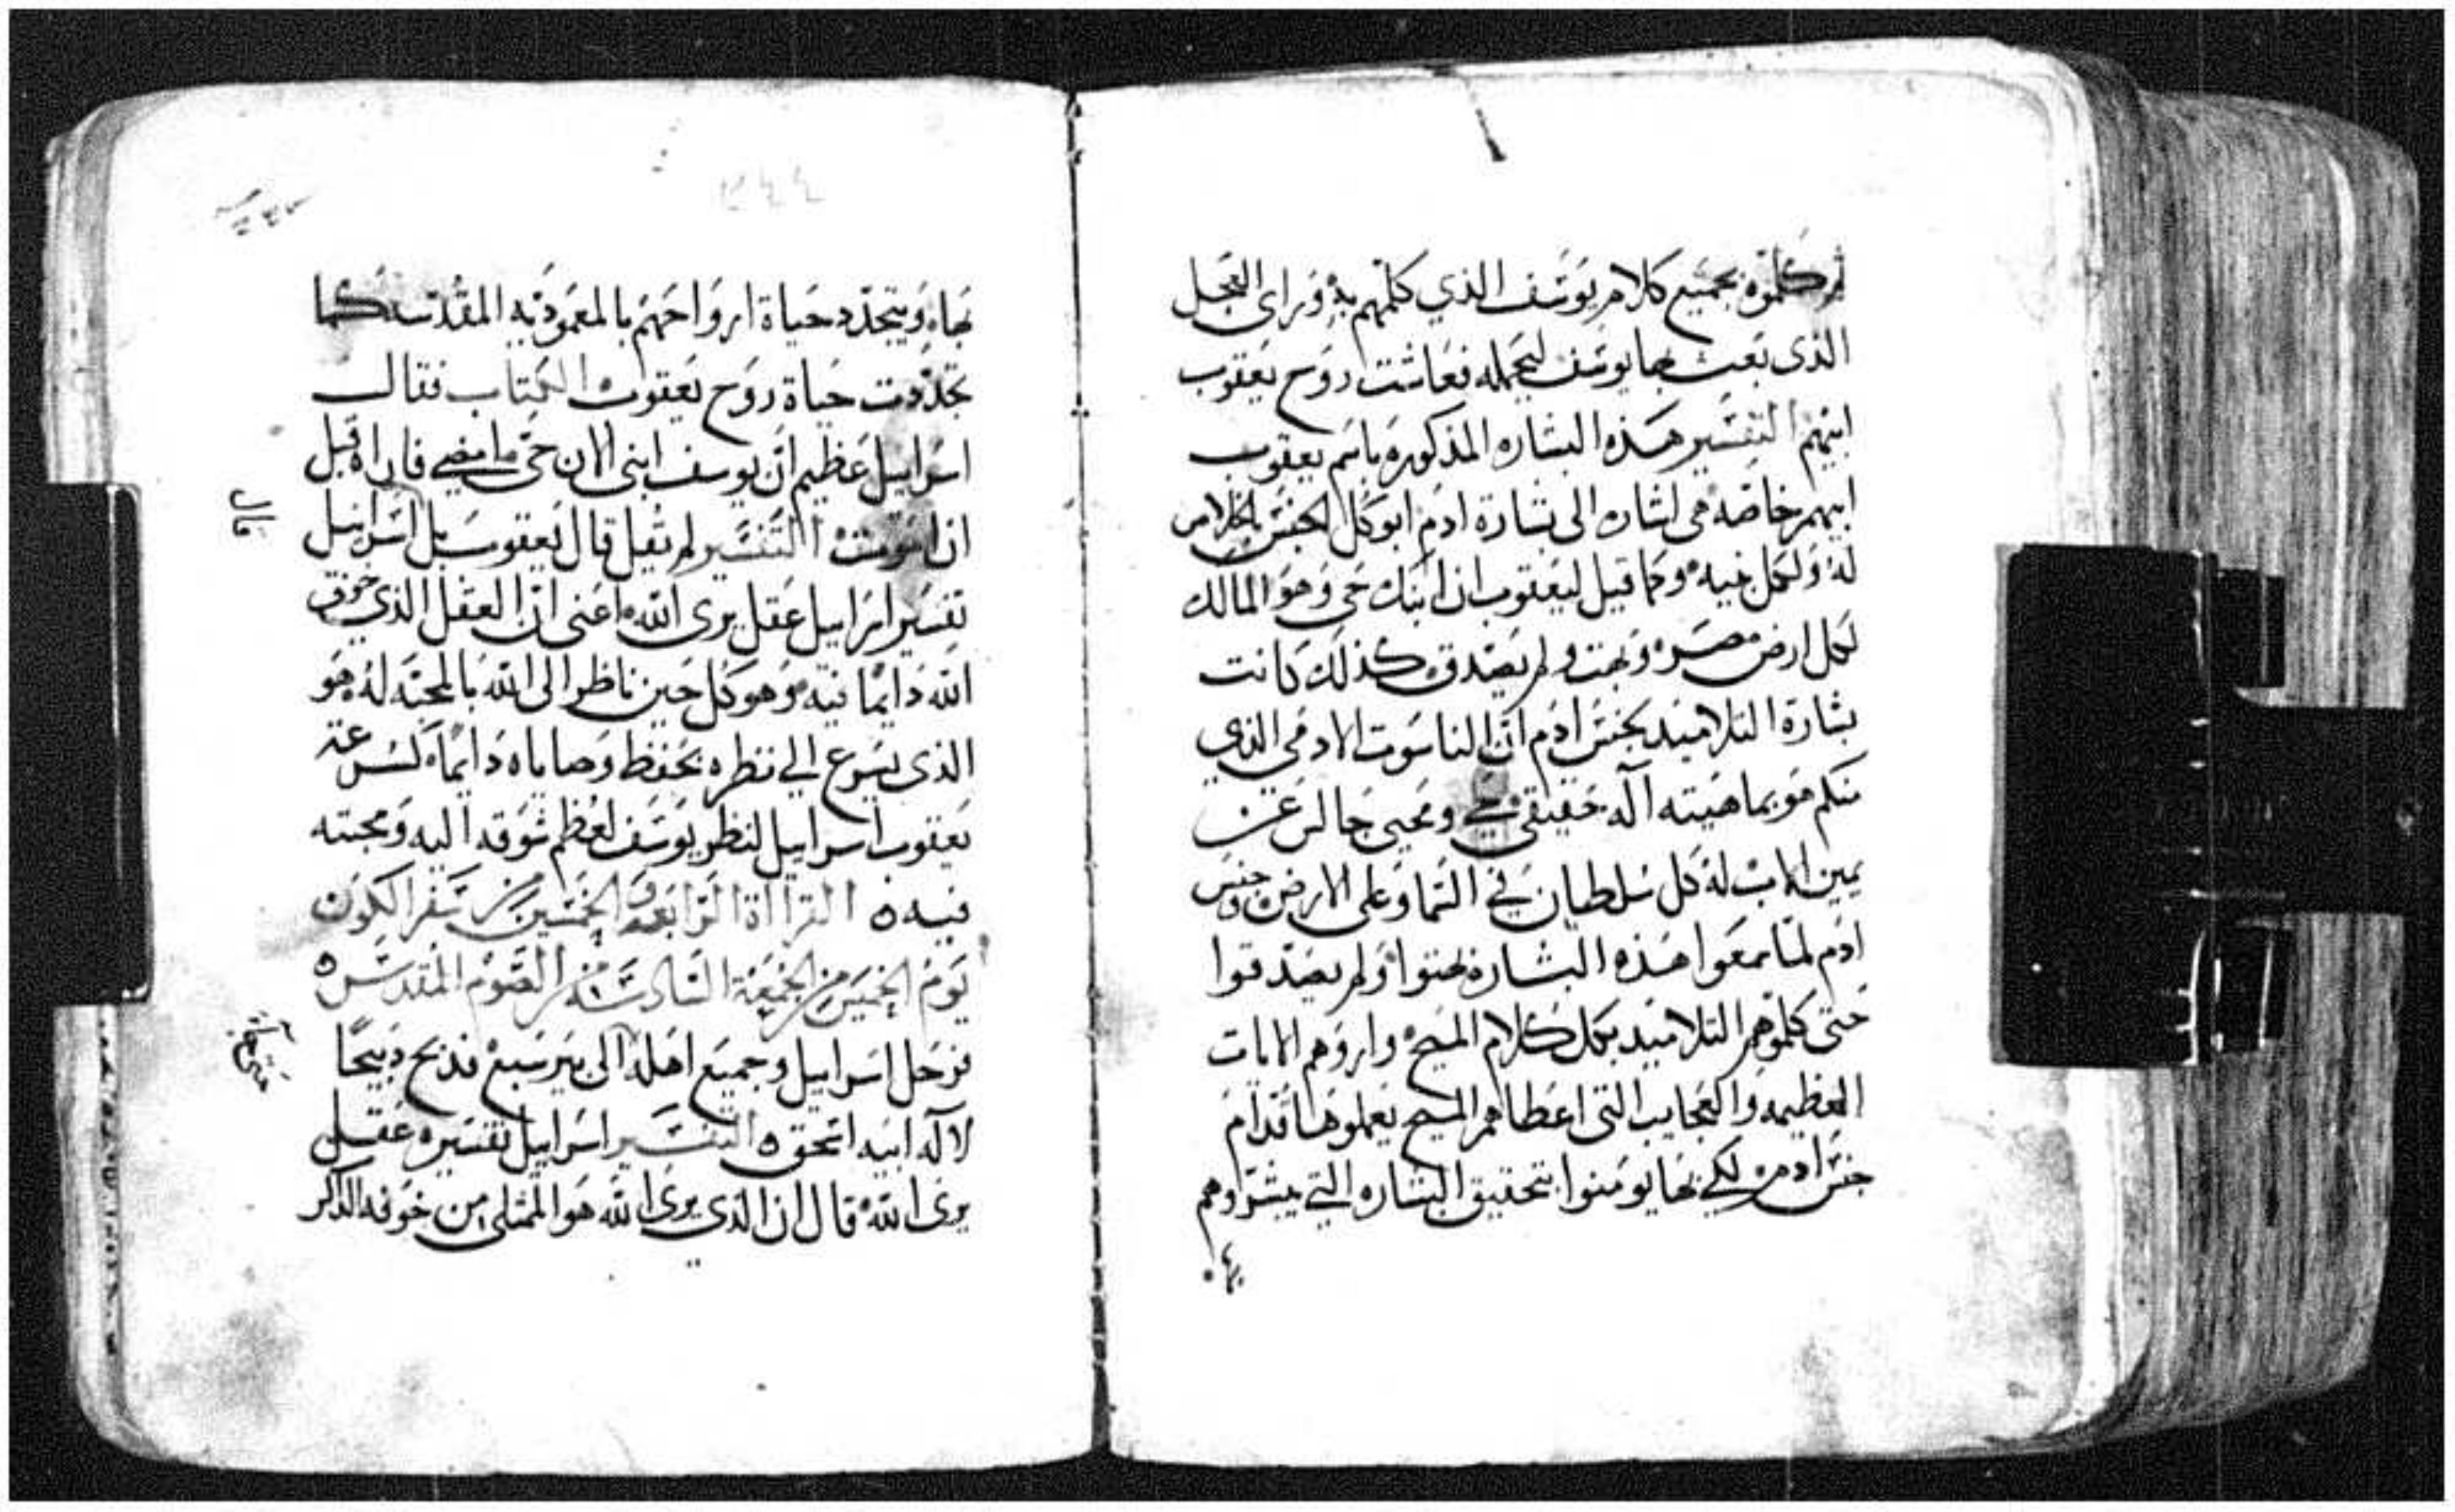 ثم كلموه بجميع كلام يوسف الذي كلمهم به وراى العجل
الذى بعث بها يوسف ليحمله فعاشت روح يعقوب
ابيهم التفسير هذه البشاره المذكوره باسم يعقوب
ابيهم خاصه هى اشاره الى بشارة ادم ابو كل الجنس
له ولكل بنيه وكما قيل ليعقوب ان ابنك حى وهو المالك
لكل ارض مصر وبهت ولم يصدق كذلك كانت
بشارة التلاميد بجنس ادم ان الناسوت الادمى الذي
منكم هو بماهيته اله حقيقى حي ومحيى جالس عن
يمين الاب له كل سلطان في السما وعلى الارض وجنس
ادم لما سمعوا هذه البشاره بهتوا ولم يصدقوا
حتى كلموهم التلاميد بكل كلام المسيح واروهم الايات
العظيمه والعجايب التى اعطاهم المسيح يعملوها قدام
جنس ادم لكي بها يومنوا بتحقيق البشاره التي يبشراوهم
بها
بها ويتجدد حياة ارواحهم بالمعموديه المقدسه كما
تجددت حياة روح يعقوب الكتاب فقال
اسراييل عظيم ان يوسف ابنى الان حى ما مضي فاراه قبل
ان اموت التفسير لم يقل قال يعقوب بل اسراييل
قال
تفسير اسراييل عقل يرى الله اعنى ان العقل الذي خوف
الله دايما فيه وهو كل حين ناظر الى الله بالمحبه له هو
الذى يسرع الي نظره بحفظ وصاياه دايما كسرعة
يعقوب اسراييل لنظر يوسف لعظم شوقه اليه ومحبته
فيه القرااة الرابعه والخمسين من سفر الكون
يوم الخميس من الجمعة السادسة من الصوم المقدس
فرحل اسراييل وجميع اهله الى بير سبع فذبح ذبيحا
لاله ابيه اسحق التفسير اسراييل تفسيره عقل
يرى الله قال ان الذي يرى الله هو الممتلى من خوفه الذاكر